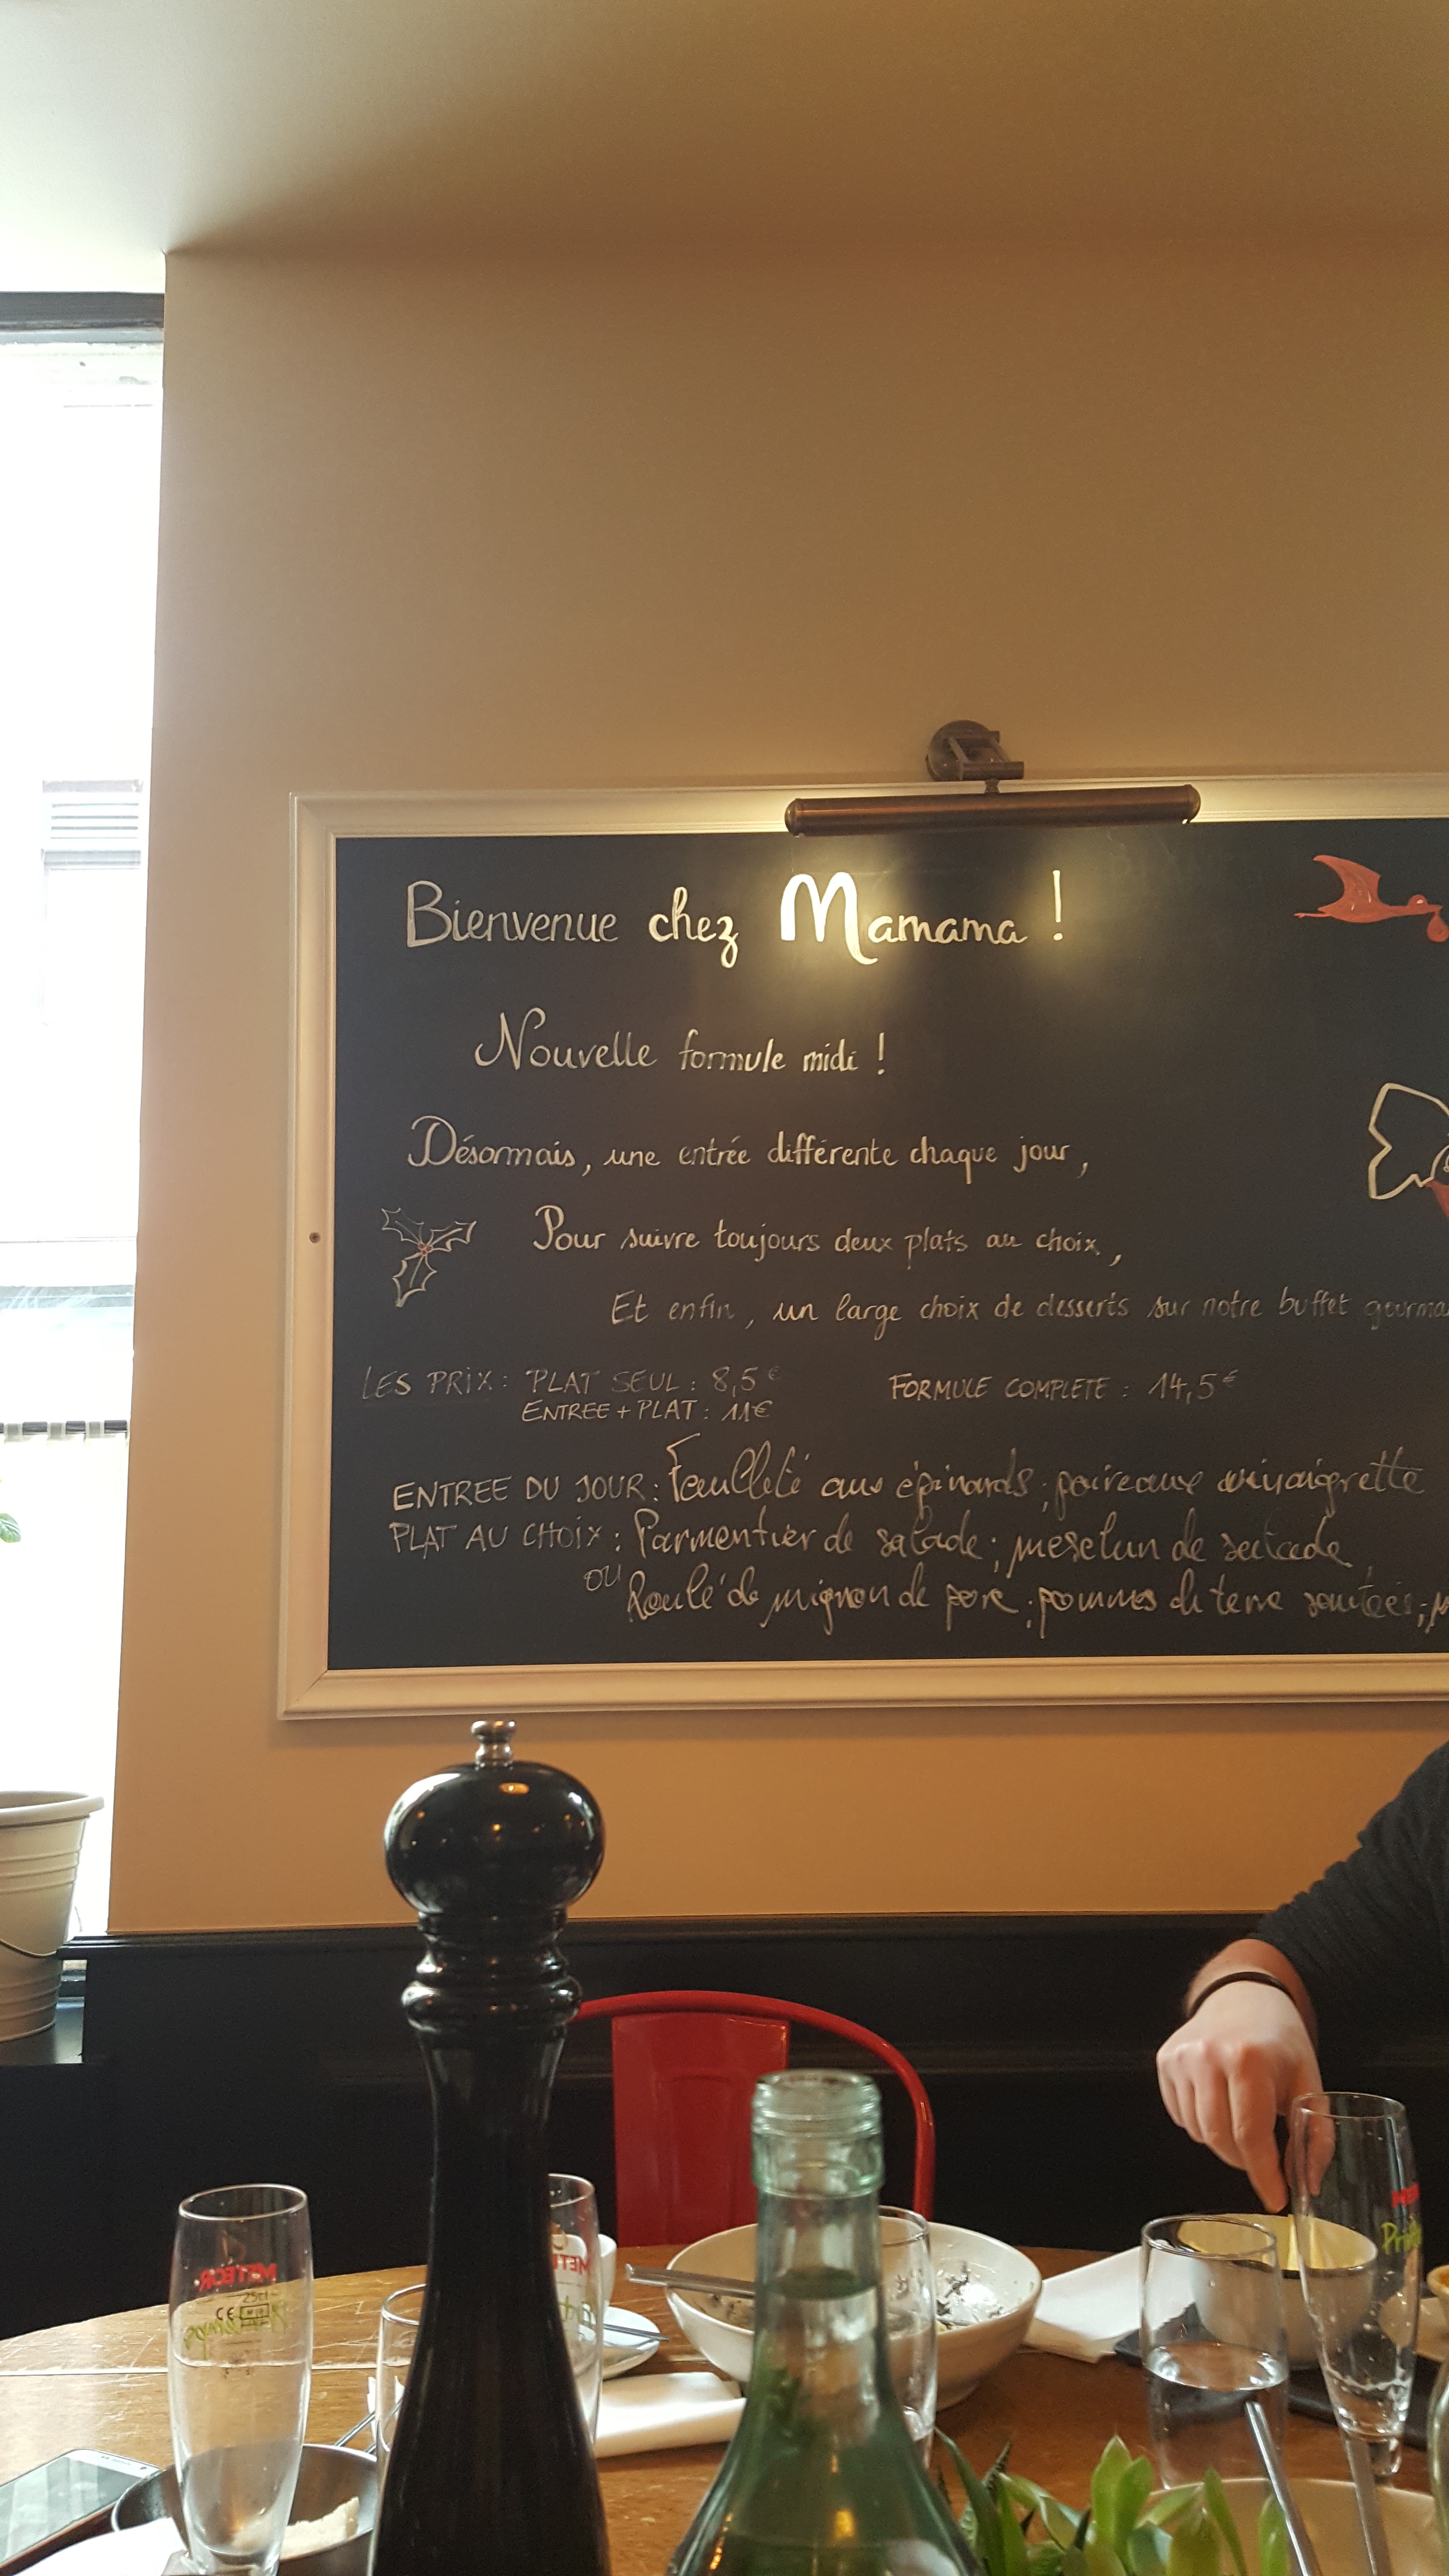 Bienvenue chez Mamama !
Nouvelle formule midi !
Désormais, une entrée différente chaque jour,
Pour suivre toujours deux plats au choix,
Et enfin, un large choix de desserts sur notre buffet gourma
LES PRIX : PLAT SEUL : 8,5€ FORMULE COMPLETE : 14,5€
ENTREE + PLAT : 11€
ENTREE DU JOUR : Feuilleté aux épinards ; poireaux vinaigrette
PLAT AU CHOIX : Parmentier de salade ; mesclun de
OU Roulé de mignon de porc ; pommes de terre sautées ;
METEOR
25cl
CE
METE